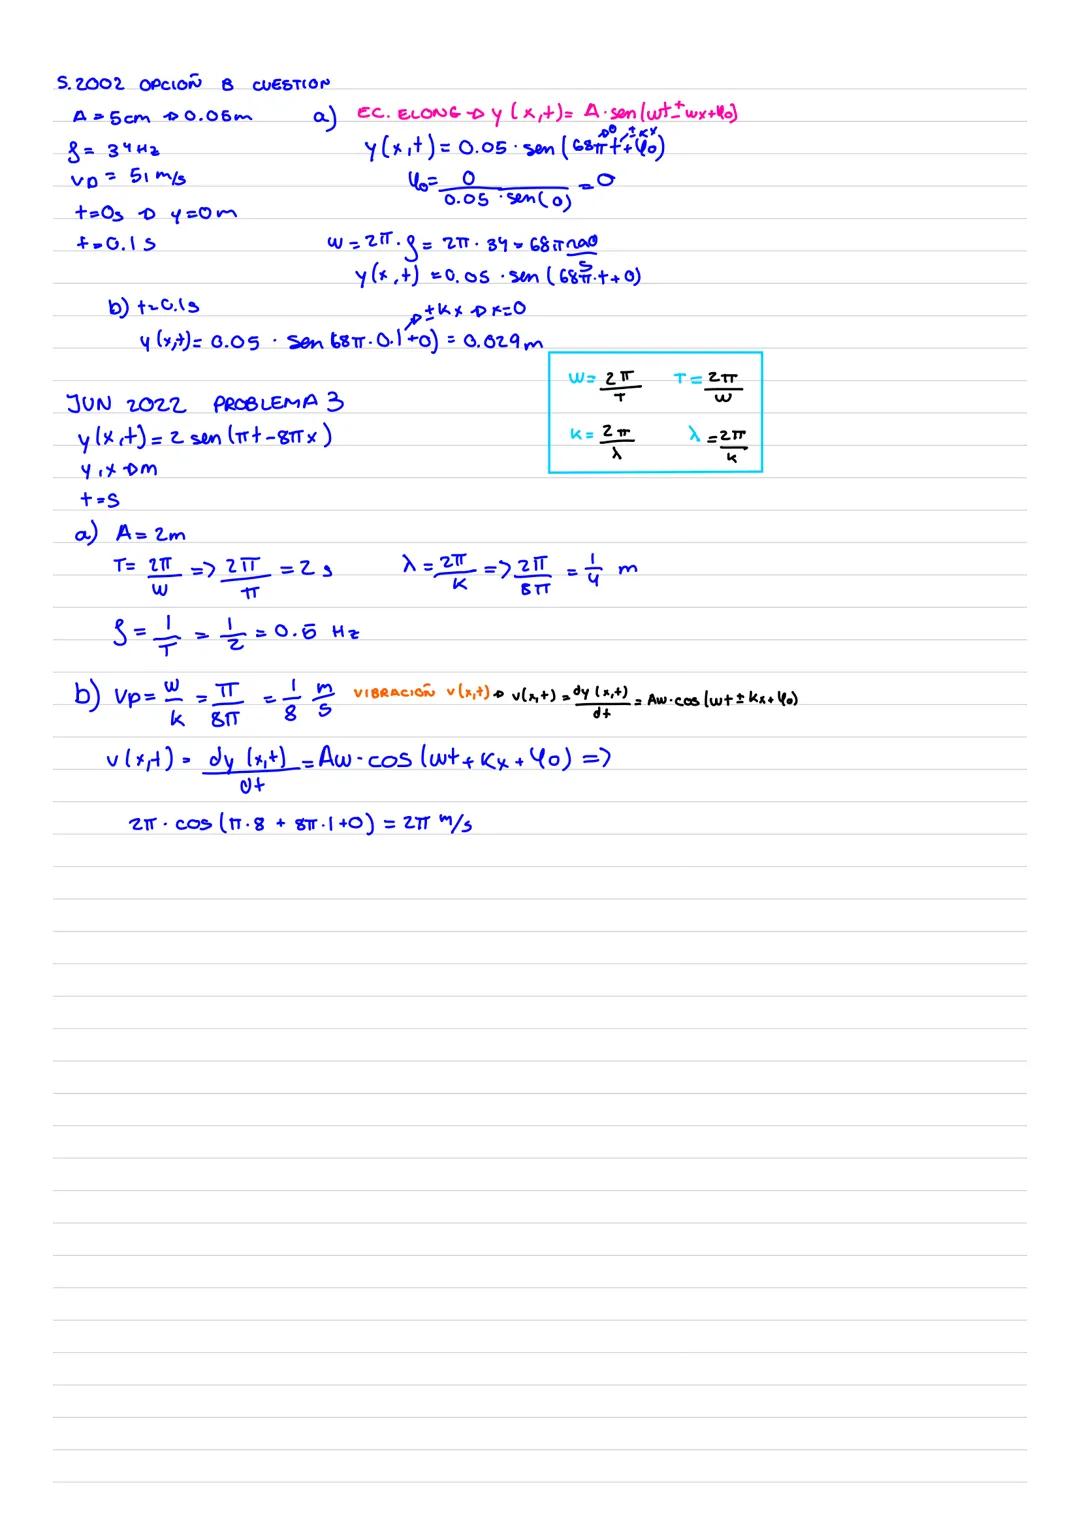 S. 2002 OPCIOÑ B CUESTION
A = 5cm → 0.05m
a) EC. ELONG → y(x,t) = A·sen(wt ± wx + φ0)
→0 ± kx
f = 34Hz
y(x,t) = 0.05 · sen(68πt + φ0)
vp = 51 m/s
φ0 = 0 / 0.05 · sen(0) = 0
t=0s → y=0m
t=0.1s
w = 2π·f = 2π·34 = 68π rad/s
y(x,t) = 0.05 · sen(68π·t+0)
b) t=0.1s
→ ±kx → x=0
y(x,t) = 0.05 · sen(68π·0.1+0) = 0.029m
w = 2π/T T = 2π/w
k = 2π/λ λ = 2π/k
JUN 2022 PROBLEMA 3
y(x,t) = 2 sen(πt - 8πx)
y,x → m
t=s
a) A = 2m
T = 2π/w => 2π/π = 2s λ = 2π/k => 2π/8π = 1/4 m
f = 1/T = 1/2 = 0.5 Hz
b) vp = w/k = π/8π = 1/8 m/s VIBRACIOÑ v(x,t) → v(x,t) = dy(x,t)/dt = Aw·cos(wt ± kx + φ0)
v(x,t) = dy(x,t)/dt = Aw·cos(wt + kx + φ0) =>
2π · cos(π·8 + 8π·1+0) = 2π m/s